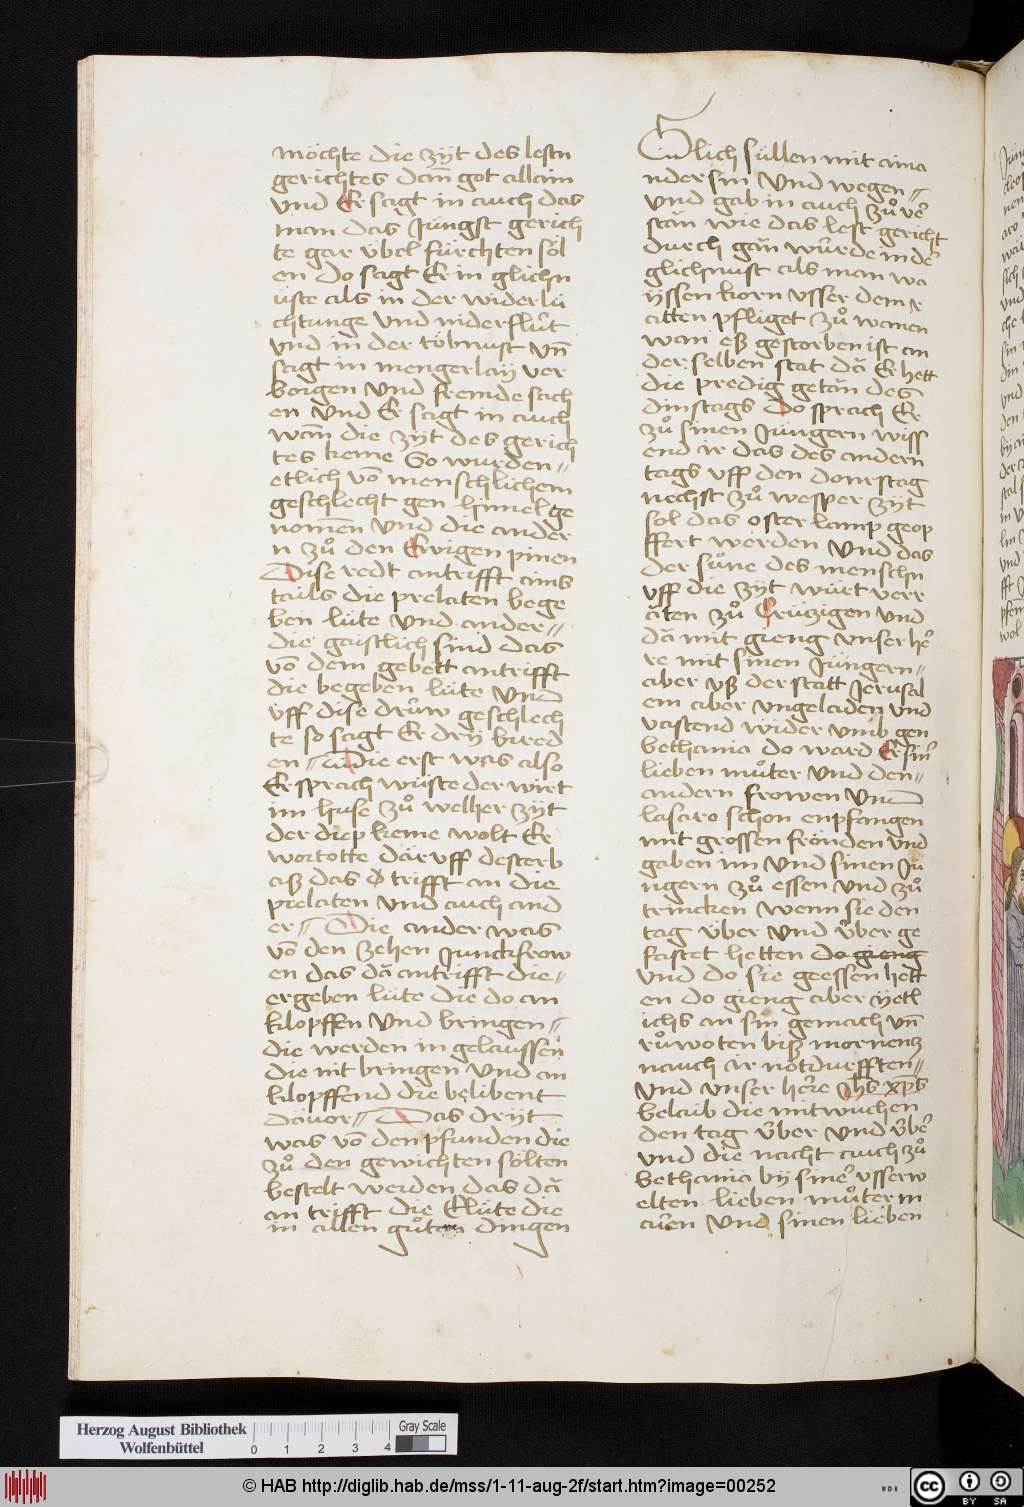 möchte die zÿt des lestn
gerichtes dañ got allain
vnd Er sagt in auch das
man das Jüngst gerich
te gar v̈bel fürchten söl
en do sagt Er in glichn
üste als in der widerlü
chtunge vnd niderflůt
vnd in der töbnust vn̄
sagt in mengerlaÿ ver
borgen vnd fremde sach
en vnd Er sagt in auch
wañ die zÿt des gerich
tes keme So wurden⸗
etlich vō menschlichem
geschlecht gen himel ge
nomēn vnd die ander
n zů den Ewigen pinen
Dise redt antrifft ains
tails die prelaten bege
ben lüte vnd ander⸗
die gaistlich sind das
vō dem gebett antrifft
die begeben lüte vnd
v̈ff dise drüw geschlech
te so sagt Er drÿ bized
en⸗ Die erst was also
Er sprach wüste der wirt
im huse zů welher zÿt
der diep keme wolt Er
wortotte dāruff desterb
aß das trifft an die
prelaten vnd auch and
er⸗ Die ander was
vō den zehen Junckfrow
en das dā antrifft die⸗
ergeben lüte die do an
klopffen vnd bringen⸗
die werden in gelaussen
die nit bringen vnd an
klopffend die belibent
dāuor⸗ Das drÿt
was vō den pfunden die
zů den gewichten sölten
bestelt werden das dā
an trifft die Elüte die
in allen gůten dingen
Erlich süllen mit aina
nder sin vnd wegen⸗
vnd gab in auch zů ver̄
stān wie das lest gericht
durch gān würde in der̄
glichnust als man wa
ÿssen korn vsser dem r
atten pfliget zů wanen
wan eß gestorben ist an
der selben stat dā Er hett
die predig getān des
dinstags Do sprach Er
zů sinen Jüngern wiss
end ir das des andern
tags vff den donrstag
nechst zů wesper zÿt
sol das oster lamp geop
ffert werden vnd das
der sůne des menschn
vff die zÿt würt verr
āten zů Crützigen vnd
dā mit gieng vnser her̄
re mit sinen Jüngern⸗
aber vß der statt Jerusal
em aber vngeladen vnd
vastend wider vmb gen
bethania do ward Er sin̄
lieben můter vnd den⸗
andern frowen vnd
lasaro schon enpfangen
mit grossen frönden vnd
gaben im vnd sinen Jü
ngern zů essen vnd zů
trincken wenn sie den
tag v̈ber vnd v̈ber ge
fastet hetten do gieng
vnd do sie geessen hett
en do gieng aber ÿetl
ichs an sin gemach vn̄
růwoten biß mornenz
nauch ir nōtdurfften⸗
vnd vnser her̄e Jhs xp̄s
belaib die mitwuchen
den tag v̈ber vnd v̈ber̄
vnd die nacht auch zů
bethania bÿ siner̄ vsserw
elten lieben můter m
arien vnd sinen lieben
Herzog August Bibliothek
Wolfenbüttel
Gray Scale
0 1 2 3 4
© HAB http://diglib.hab.de/mss/1-11-aug-2f/start.htm?image=00252
WDB
cc BY SA